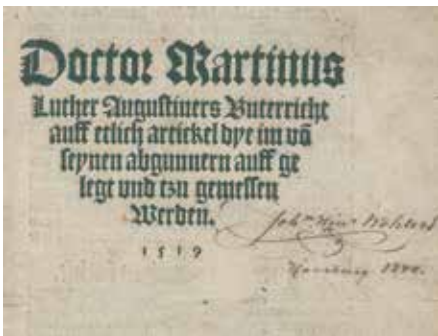 Doctor Martinus
Luther Augustiners Vnterricht
auff etlich artickel dye im vō
seynen abgunnern auff ge
legt vnd tzu gemessen
Werden.
1519
Joh. Hinr.
1800.